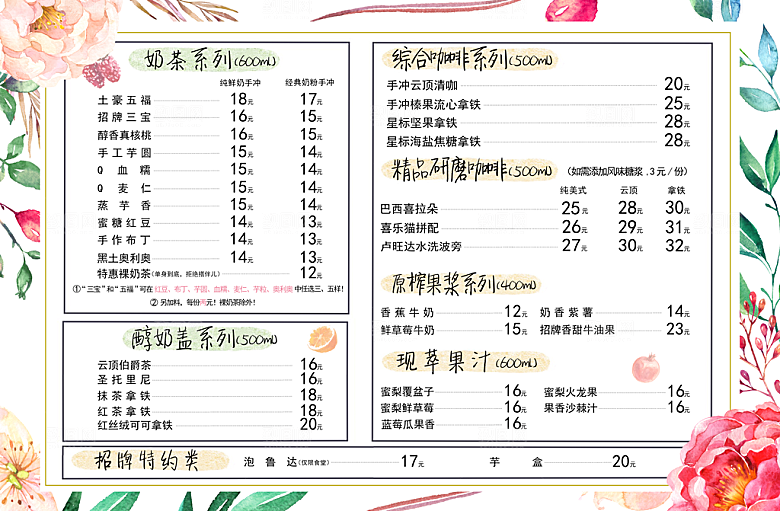 奶茶系列(600ml)
纯鲜奶手冲 经典奶粉手冲
土豪五福 18元 17元
招牌三宝 16元 15元
醇香真核桃 16元 15元
手工芋圆 15元 14元
Q血糯 15元 14元
Q麦仁 15元 14元
蒸芋香 15元 14元
蜜糖红豆 14元 13元
手作布丁 14元 13元
黑土奥利奥 14元 13元
特惠裸奶茶(单身到底，拒绝搭伴儿) 12元
①“三宝”和“五福”可在 红豆、布丁、芋圆、血糯、麦仁、芋粒、奥利奥 中任选三、五样!
② 另加料，每份两元！裸奶茶除外！
醇奶盖系列(500ml)
云顶伯爵茶 16元
圣托里尼 16元
抹茶拿铁 18元
红茶拿铁 18元
红丝绒可可拿铁 20元
综合咖啡系列(500ml)
手冲云顶清咖 20元
手冲榛果流心拿铁 25元
星标坚果拿铁 28元
星标海盐焦糖拿铁 28元
精品研磨咖啡(500ml) (如需添加风味糖浆 .3元/份)
纯美式 云顶 拿铁
巴西喜拉朵 25元 28元 30元
喜乐猫拼配 26元 29元 31元
卢旺达水洗波旁 27元 30元 32元
原榨果浆系列(400ml)
香蕉牛奶 12元 奶香紫薯 14元
鲜草莓牛奶 15元 招牌香甜牛油果 23元
现萃果汁(600ml)
蜜梨覆盆子 16元 蜜梨火龙果 16元
蜜梨鲜草莓 16元 果香沙棘汁 16元
蓝莓瓜果香 16元
招牌特约类 泡鲁达(仅限食堂) 17元 芋盒 20元